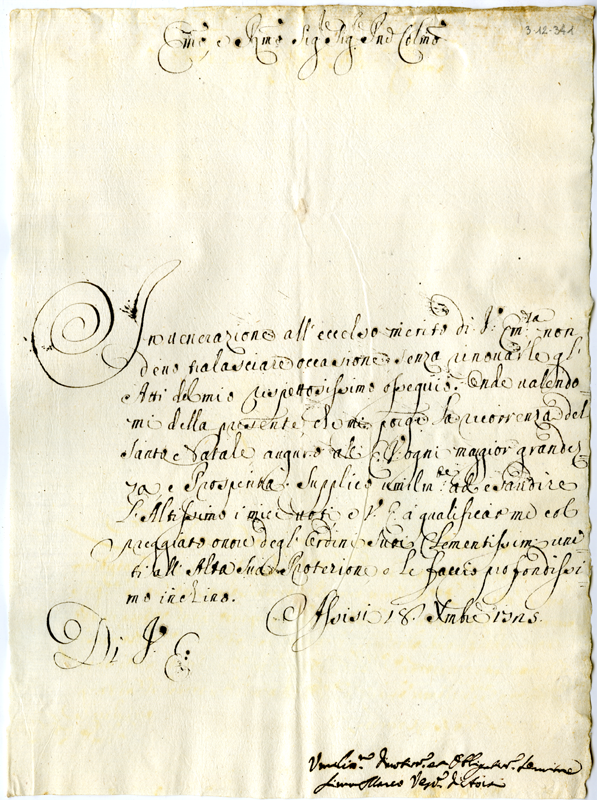 3-12-341
Em̃o, e Rm̃o Sig.re Sig.re Pnd Colm̃o
In venerazione all' eccelso merito di V. Em.za non
devo tralasciare occasione senza rinovarle gl'
Atti del mio rispettosissimo ossequio. Onde valendo-
mi della presente che mi porge la ricorrenza del
Santo Natale auguro all' E. V. ogni maggior grandez-
za, e Prosperità. Supplico umilm.te ad esaudire
l' Altissimo i miei voti e V. E. à qualificarme col
preggiato onore degl' Ordini Suoi Clementissimi uni-
ti all' Alta Sua Protezione e le faccio profondissi-
mo inchino.
Assisi 18. Xmbre 1725.
Di V. E.
Umilis.mo Devot.mo et Obligat.mo Servitore
Marco Vesc.o di Asisi